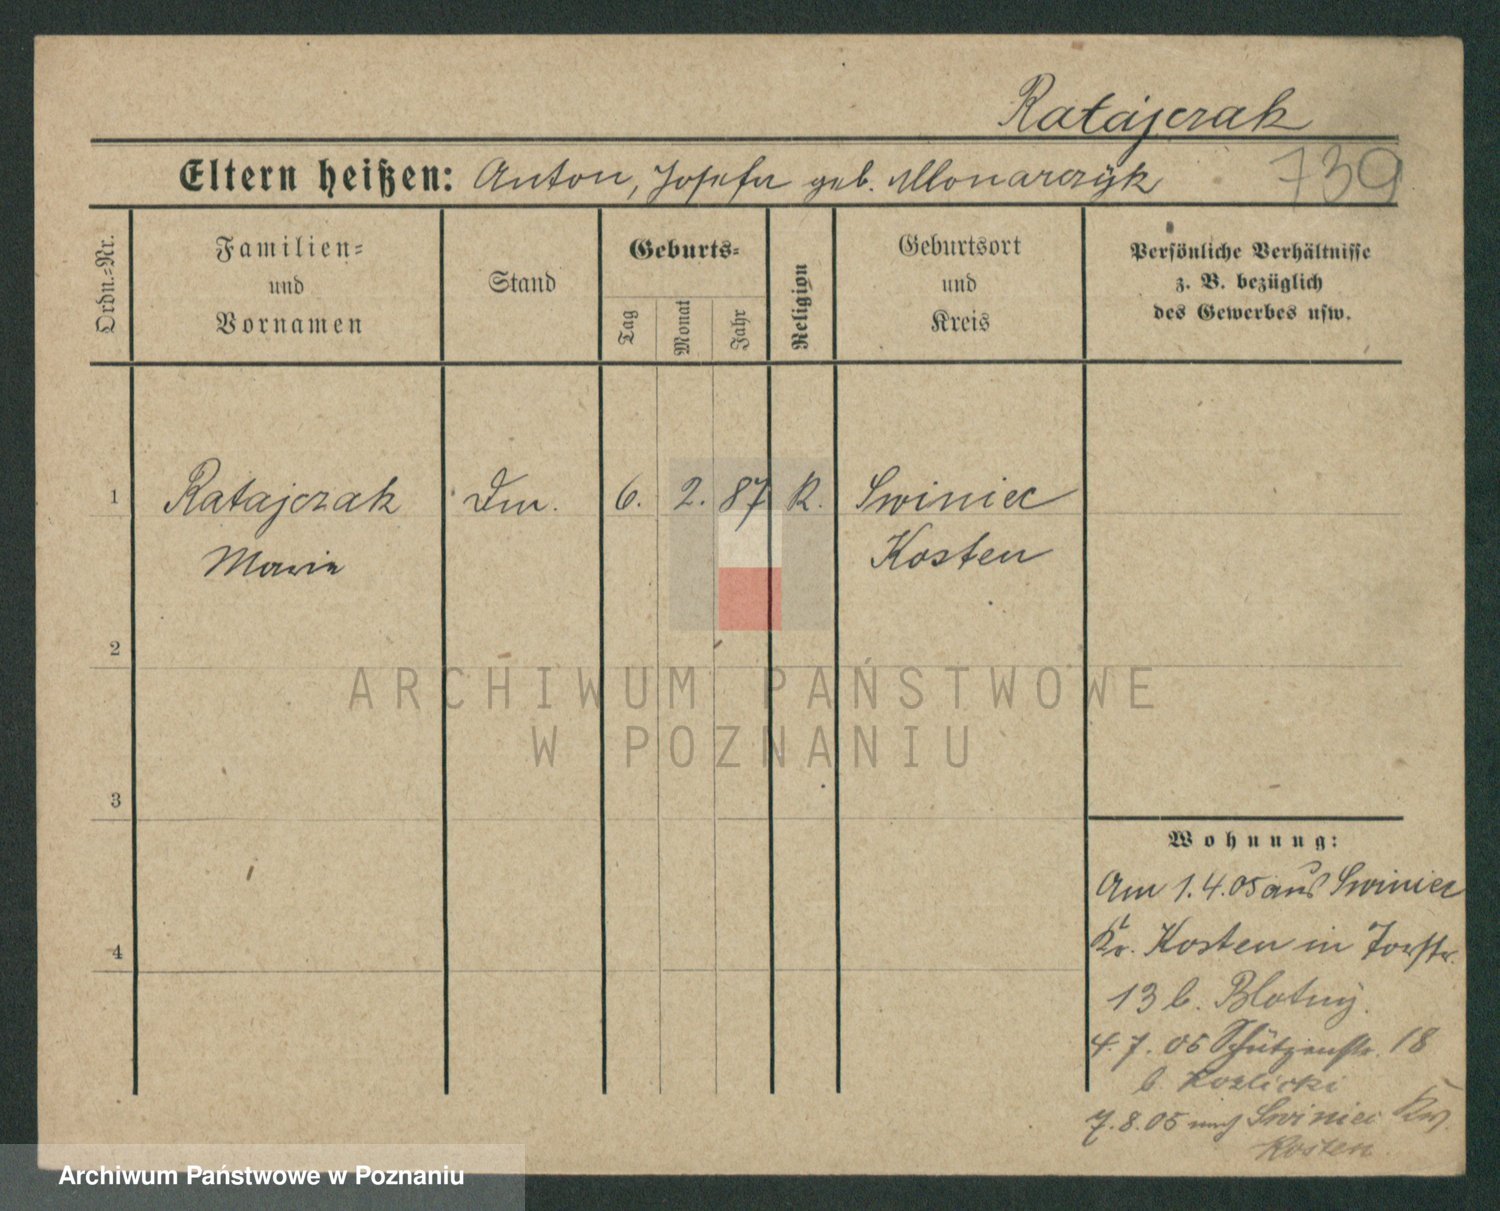 Ratajczak
Eltern heißen: Anton, Josefa geb. Monarczÿk
739
Ordn.-Nr.
Familien-
und
Vornamen
Stand
Geburts-
Tag
Monat
Jahr
Religion
Geburtsort
und
Kreis
Persönliche Verhältnisse
z. B. bezüglich
des Gewerbes usw.
1 Ratajczak 6. 2. 87 K. Swiniec
Marie Kosten
2
ARCHIWUM PAŃSTWOWE
W POZNANIU
3
Wohnung:
Am 1.4.05 aus Swiniec
Kr. Kosten in Torstr.
13 b. Blotny.
4
4.7.05 Schützenstr. 18
b. Kozlicki
7.8.05 nach Swiniec Kr.
Kosten.
Archiwum Państwowe w Poznaniu